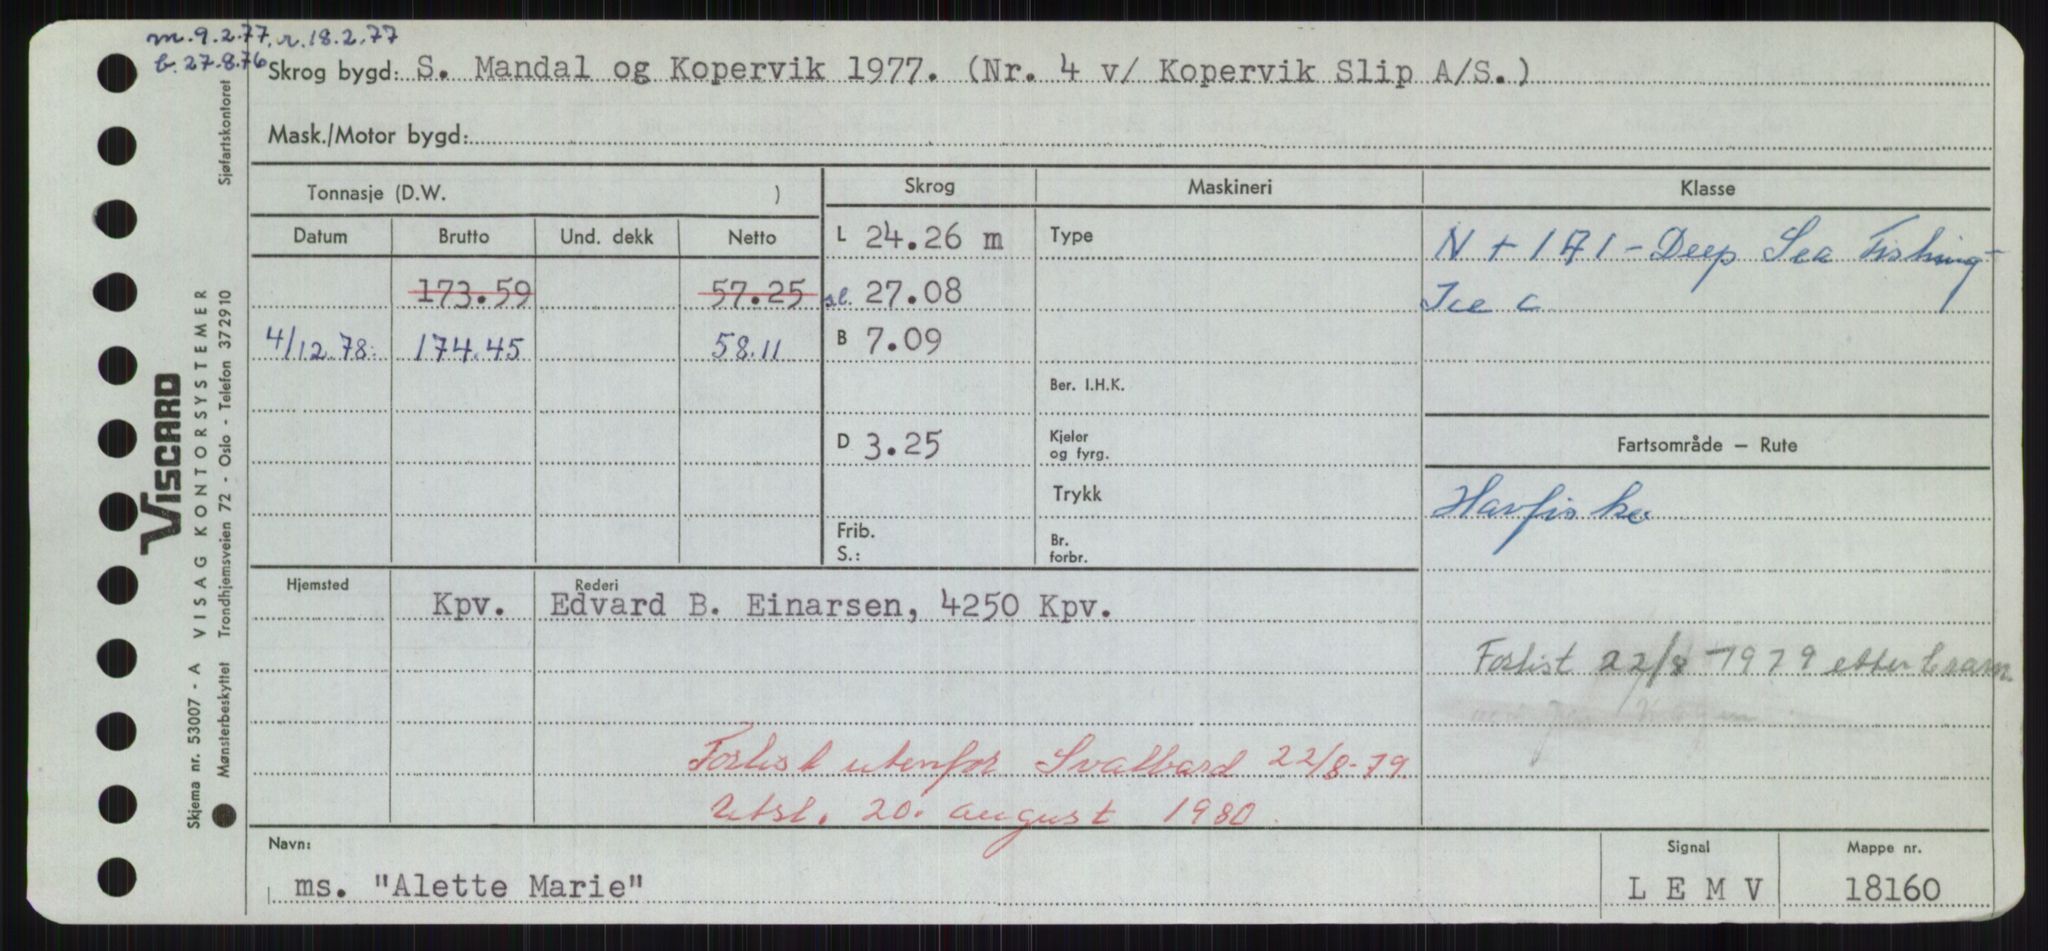 m. 9.2.77, r. 18.2.77
b. 27.8.76
Skrog bygd: S. Mandal og Kopervik 1977. (Nr. 4 v/ Kopervik Slip A/S.)
Mask./Motor bygd:
Tonnasje (D.W. )
Skrog
Maskineri
Klasse
Datum Brutto Und. dekk Netto
173.59 57.25
4/12.78. 174.45 58.11
L 24.26 m
sl. 27.08
B 7.09
D 3.25
Frib.
S.:
Type
Ber. I.H.K.
Kjeler
og fyrg.
Trykk
Br.
forbr.
N + 1A1 - Deep Sea Fishing -
Ice C
Fartsområde – Rute
Havfiske
Forlist 22/8 - 1979 etter
Hjemsted Rederi
Kpv. Edvard B. Einarsen, 4250 Kpv.
Forlist utenfor Svalbard 22/8-79.
Utsl. 20. august 1980.
Navn:
ms. "Alette Marie"
Signal
L E M V
Mappe nr.
18160
VISCARD
VISAG KONTORSYSTEMER
Skjema nr. 53007 - A
Sjøfartskontoret
Trondhjemsveien 72 - Oslo - Telefon 372910
Mønsterbeskyttet